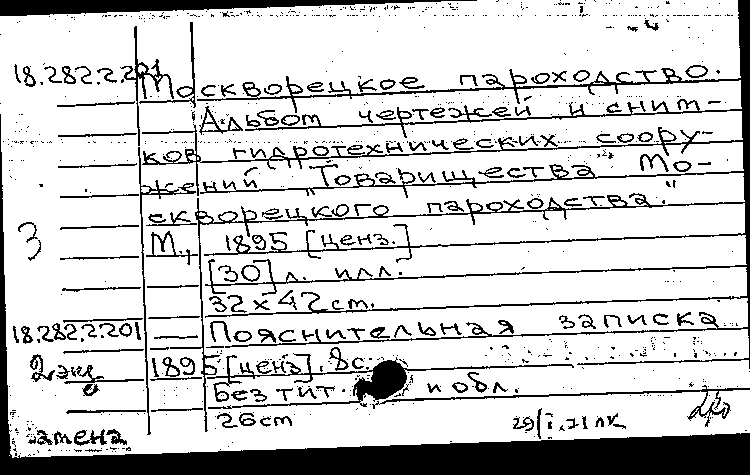 18.282.2.201
Москворецкое пароходство.
Альбом чертежей и сним-
ков гидротехнических соору-
жений „Товарищества Мо-
скворецкого пароходства."
3
М., 1895 [ценз.]
[30] л. илл.
32 х 42 cm.
18.282.2.201 — Пояснительная записка
2 экз. 1895 [ценз]. 8 с.
Без тит. и обл.
26 cm
замена 29/I.71